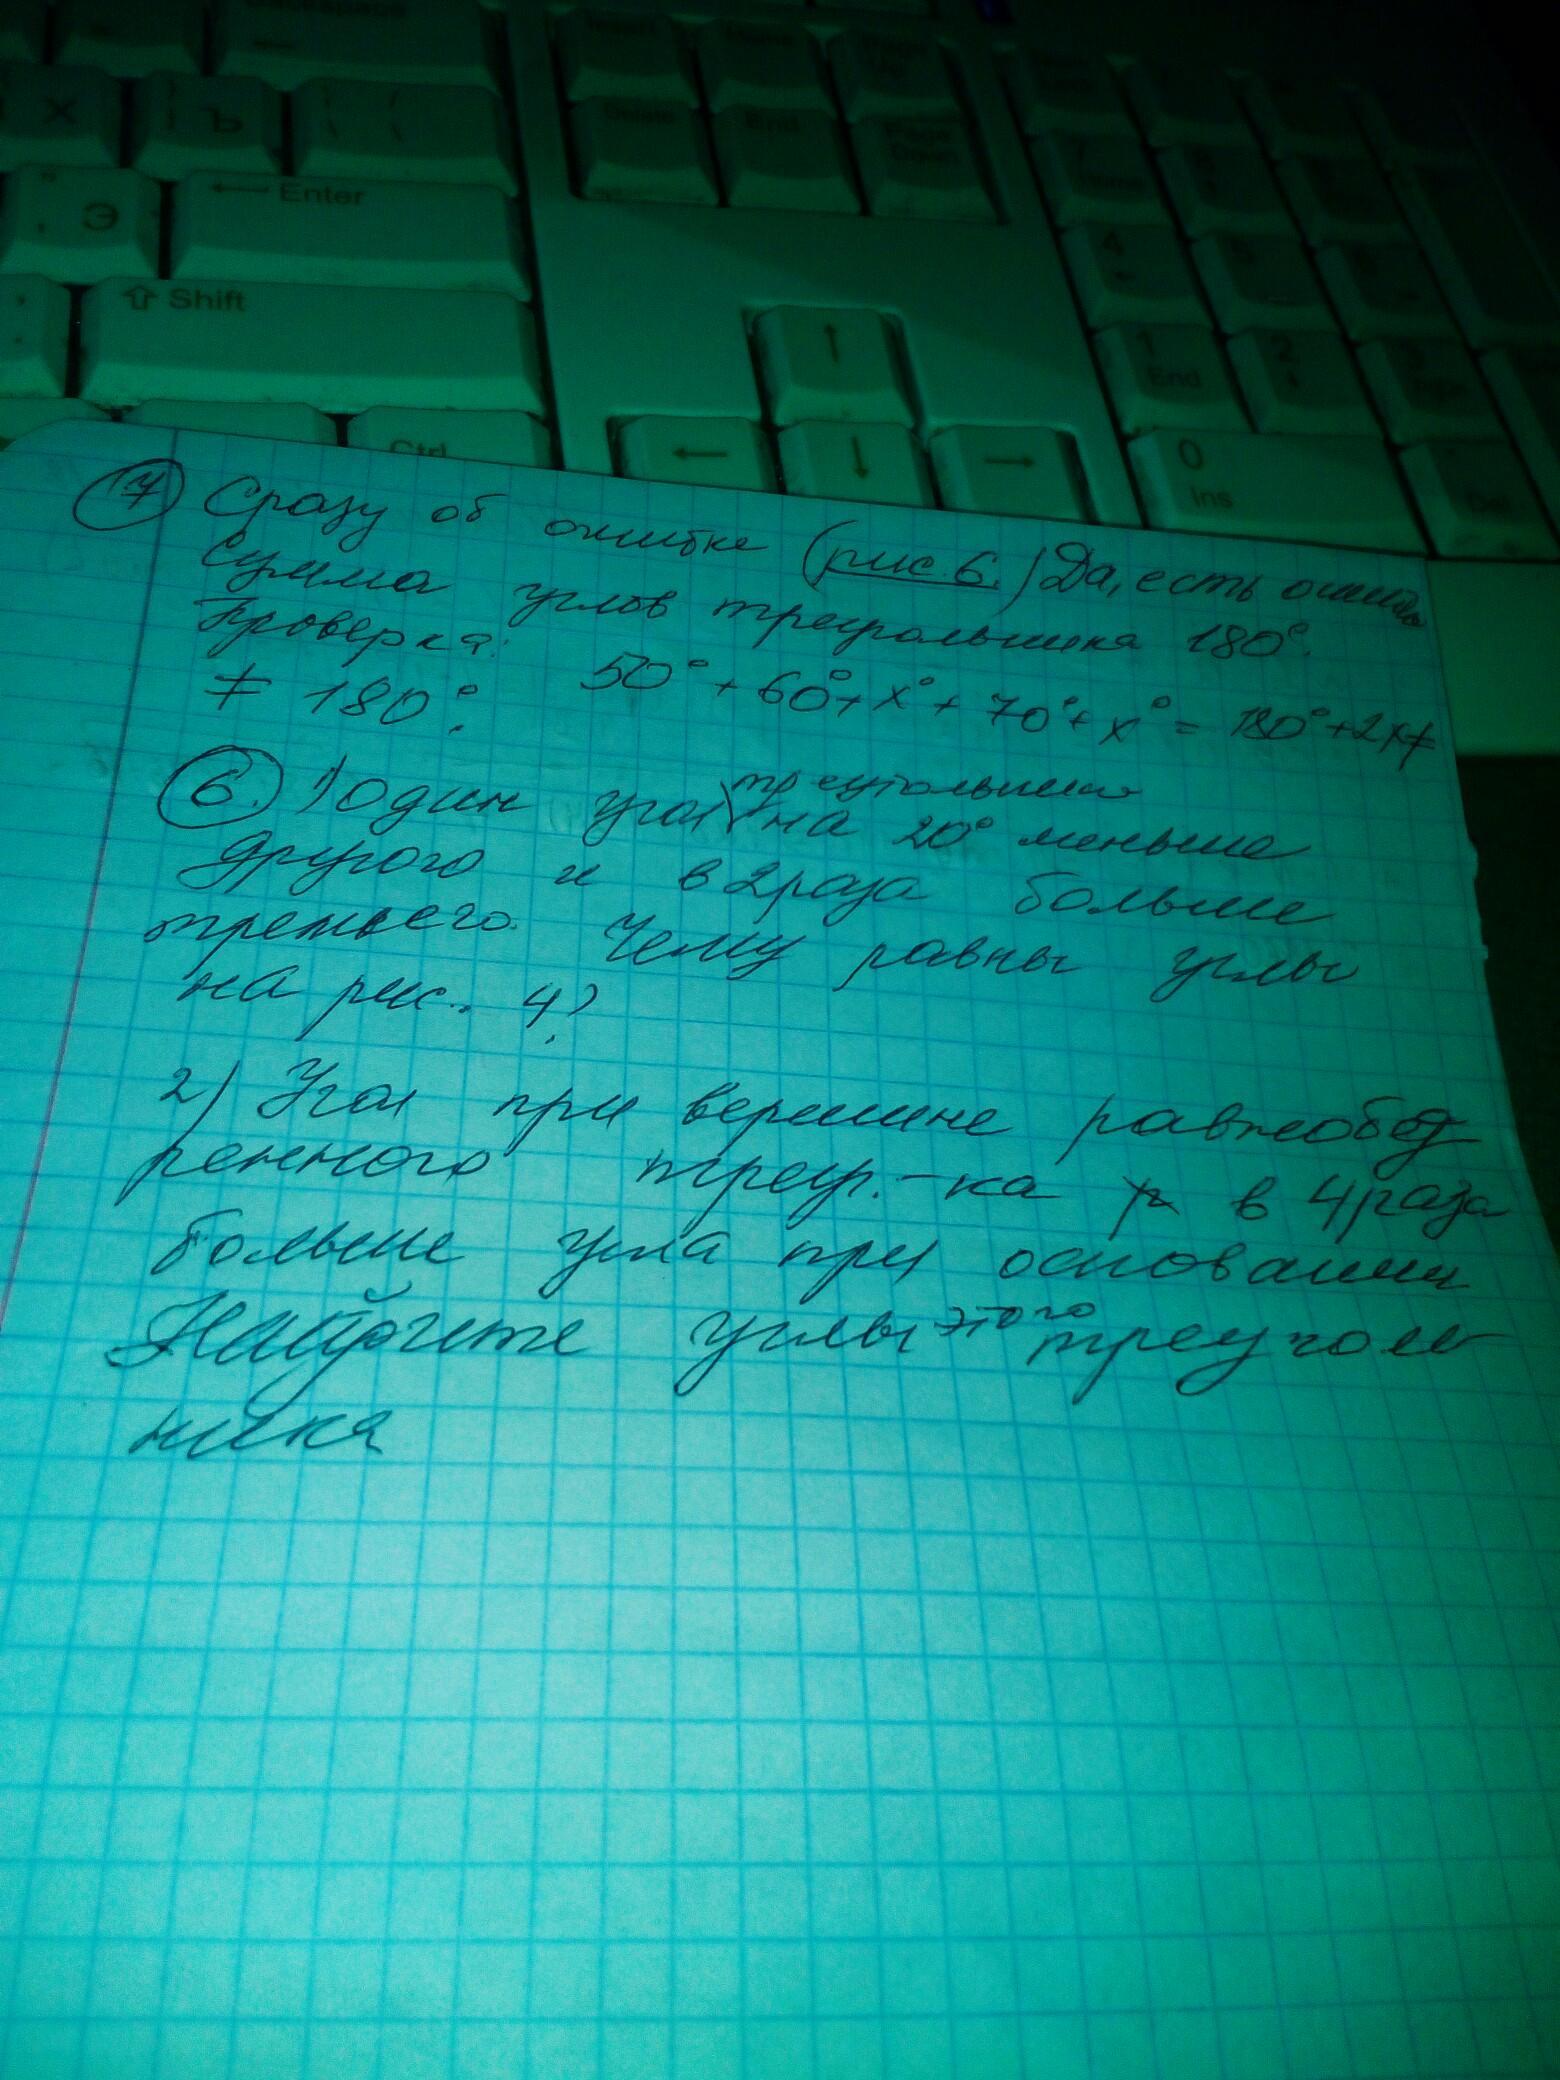 Backspace
Insert
Home
Х Ъ
Delete End Page Down
Э ← Enter
7 Home
4 ←
5
⇧ Shift
↑
1 End 2 ↓
Ctrl
← ↓ →
0 Ins
Del
7 Сразу об ошибке (рис. 6.) Да, есть ошибка
Сумма углов треугольника 180°.
Проверка: 50° + 60° + x° + 70° + x° = 180° + 2x ≠
≠ 180°.
6. 1) Один угол треугольника на 20° меньше
другого и в 2 раза больше
третьего. Чему равны углы
на рис. 4?
2) Угол при вершине равнобед
ренного треуг.-ка в 4 раза
больше угла при основании
Найдите углы этого треуголь
ника